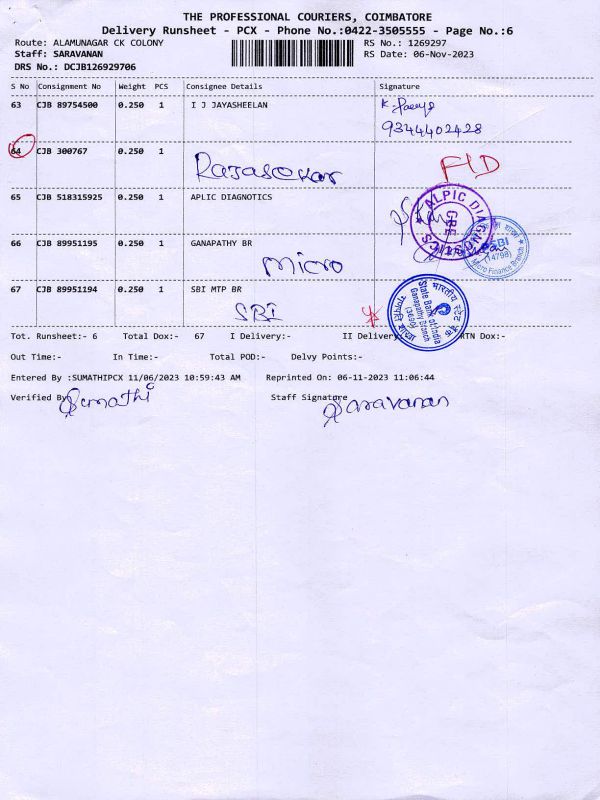 THE PROFESSIONAL COURIERS, COIMBATORE
Delivery Runsheet - PCX - Phone No.:0422-3505555 - Page No.:6
Route: ALAMUNAGAR CK COLONY RS No.: 1269297
Staff: SARAVANAN RS Date: 06-Nov-2023
DRS No.: DCJB126929706
S No Consignment No Weight PCS Consignee Details Signature
63 CJB 89754500 0.250 1 I J JAYASHEELAN
9344402428
64 CJB 300767 0.250 1
Rajasekar FID
65 CJB 518315925 0.250 1 APLIC DIAGNOTICS
ALPIC DIAGNOSTICS
CBE
66 CJB 89951195 0.250 1 GANAPATHY BR
Micro
SBI
(14798)
Micro Finance Branch
67 CJB 89951194 0.250 1 SBI MTP BR
SBI
भारतीय स्टेट बैंक
State Bank of India
Ganapathy Branch
(3690)
Tot. Runsheet:- 6 Total Dox:- 67 I Delivery:- II Delivery RTN Dox:-
Out Time:- In Time:- Total POD:- Delvy Points:-
Entered By :SUMATHIPCX 11/06/2023 10:59:43 AM Reprinted On: 06-11-2023 11:06:44
Verified By Sumathi Staff Signature Saravanan